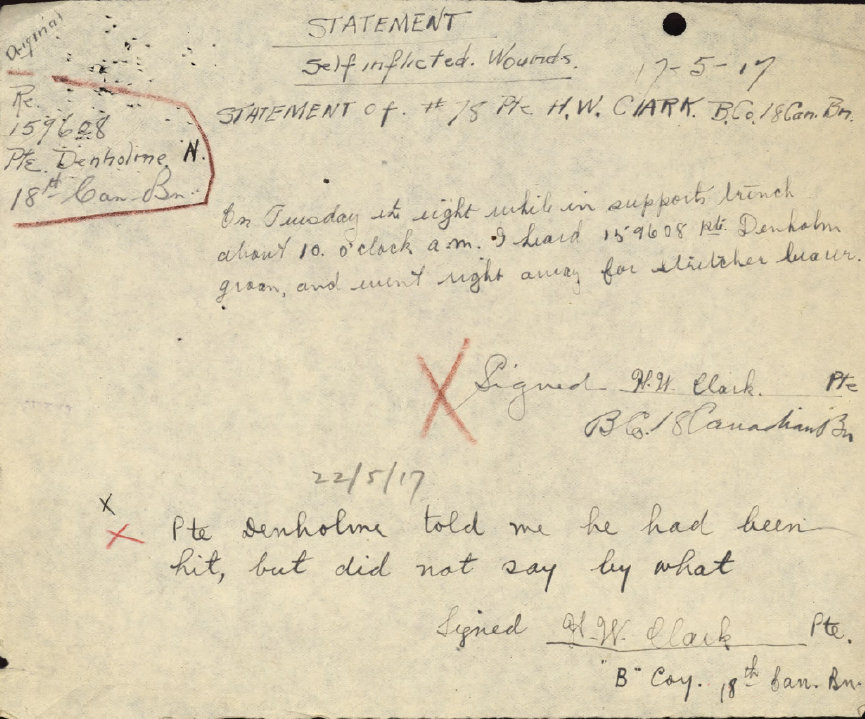 Original
STATEMENT
Self inflicted. Wounds.
17-5-17
Re.
159608
Pte. Denholme N.
18th Can. Bn.
STATEMENT of. # 78 Pte H.W. CLARK. B.Co. 18 Can. Bn.
On Tuesday the eight while in supports trench
about 10. o'clock a.m. I heard 159608 Pte. Denholm
groan, and went right away for stretcher bearer.
X Signed H.W. Clark. Pte
B Co. 18 Canadian Bn
22/5/17
X
X Pte Denholme told me he had been
hit, but did not say by what
Signed H.W. Clark Pte.
"B" Coy. 18th Can. Bn.